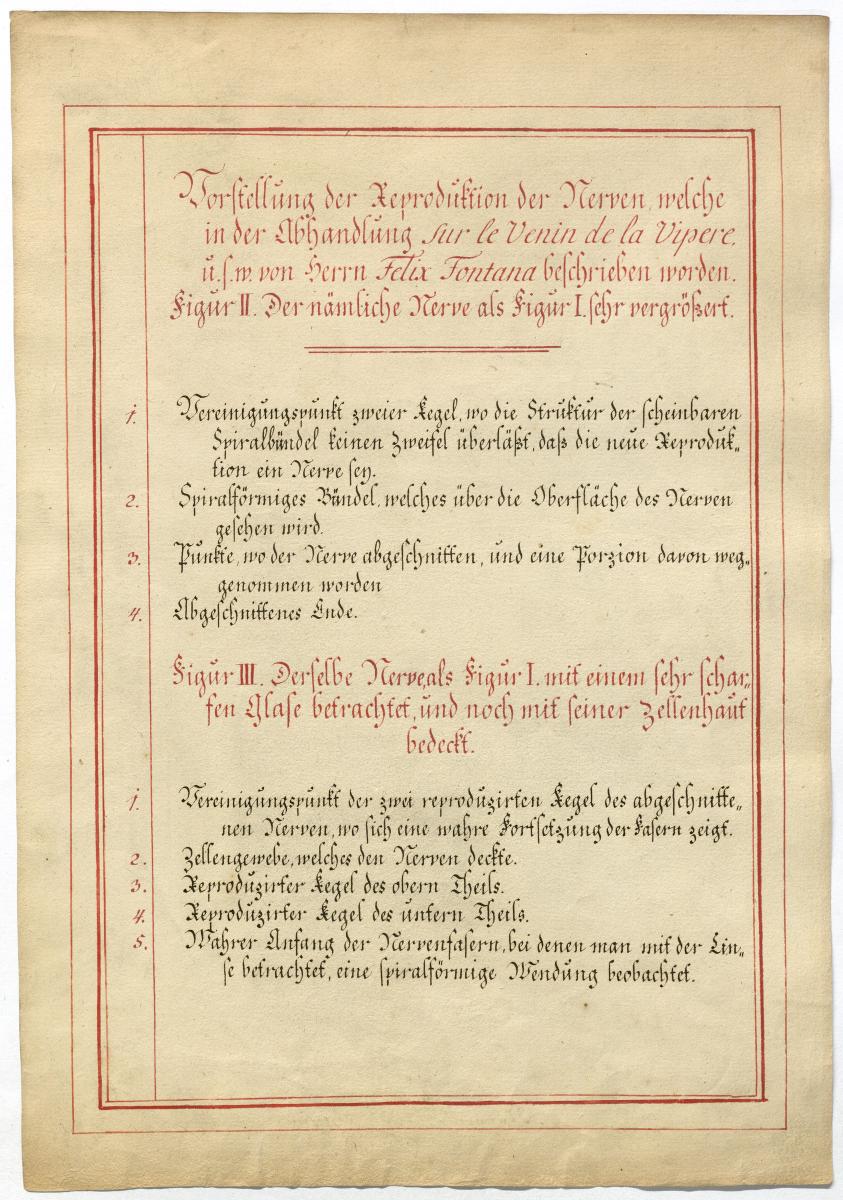 Vorstellung der Reproduktion der Nerven, welche
in der Abhandlung sur le Venin de la Vipere,
u. s. w. von Herrn Felix Fontana beschrieben worden.
Figur II. Der nämliche Nerve als Figur I. sehr vergrößert.
1. Vereinigungspunkt zweier Kegel, wo die Struktur der scheinbaren
Spiralbündel keinen Zweifel überläßt, daß die neue Reproduk„
tion ein Nerve sey.
2. Spiralförmiges Bündel, welches über die Oberfläche des Nerven
gesehen wird.
3. Punkte, wo der Nerve abgeschnitten, und eine Porzion davon weg„
genommen worden
4. Abgeschnittenes Ende.
Figur III. Derselbe Nerve, als Figur I. mit einem sehr schar„
fen Glase betrachtet, und noch mit seiner Zellenhaut
bedeckt.
1. Vereinigungspunkt der zwei reproduzirten Kegel des abgeschnitte„
nen Nerven, wo sich eine wahre Fortsetzung der Fasern zeigt.
2. Zellengewebe, welches den Nerven deckte.
3. Reproduzirter Kegel des obern Theils.
4. Reproduzirter Kegel des untern Theils.
5. Wahrer Anfang der Nervenfasern, bei denen man mit der Lin„
se betrachtet, eine spiralförmige Wendung beobachtet.